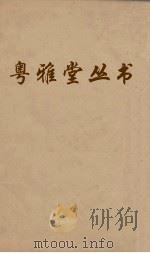 粤雅堂丛书
研拘
mtoou.info